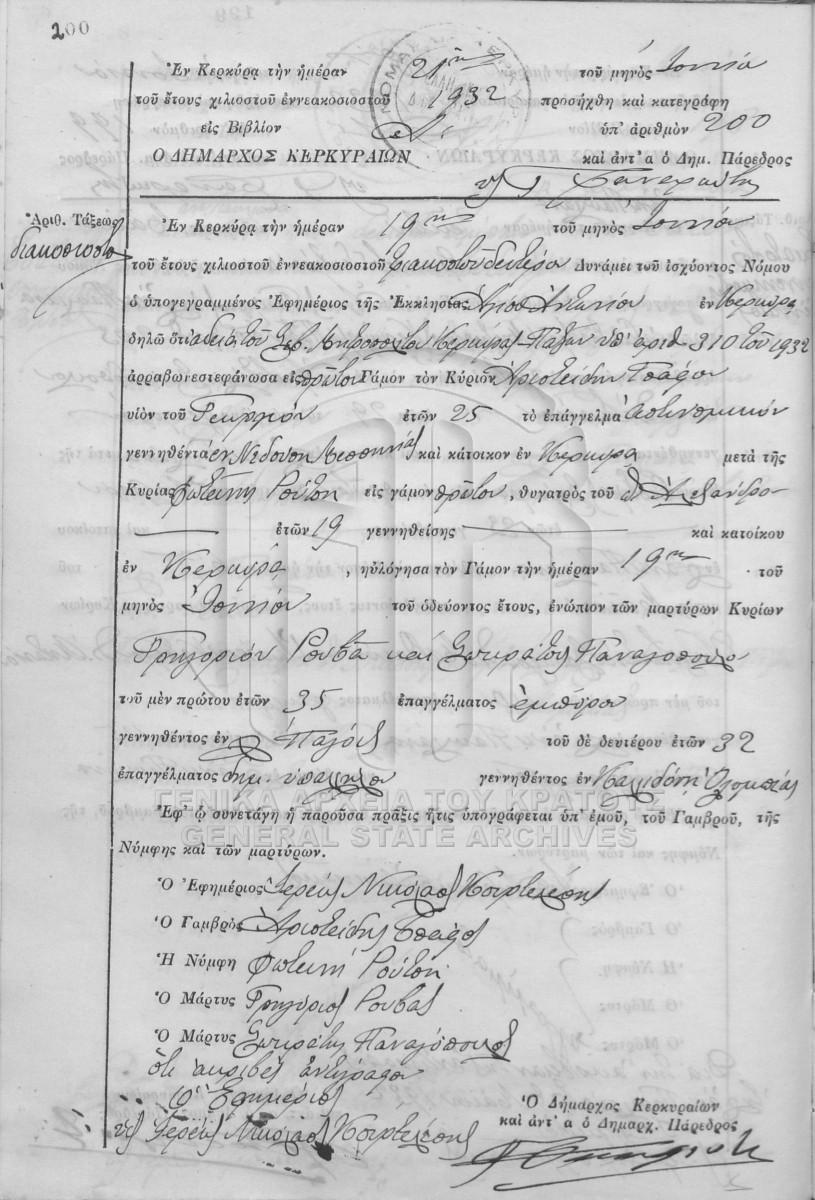 200
Ἐν Κερκύρᾳ τὴν ἡμέραν 21ην τοῦ μηνὸς Ἰουνίου
τοῦ ἔτους χιλιοστοῦ ἐννεακοσιοστοῦ 1932 προσήχθη καὶ κατεγράφη
εἰς Βιβλίον ὑπ' ἀριθμὸν 200
Ὁ ΔΗΜΑΡΧΟΣ ΚΕΡΚΥΡΑΙΩΝ καὶ ἀντ' α ὁ Δημ. Πάρεδρος
Ἀριθ. Τάξεως
διακοσιοστὸ
Ἐν Κερκύρᾳ τὴν ἡμέραν 19ην τοῦ μηνὸς Ἰουνίου
τοῦ ἔτους χιλιοστοῦ ἐννεακοσιοστοῦ τριακοστοῦ δευτέρου Δυνάμει τοῦ ἰσχύοντος Νόμου
ὁ ὑπογεγραμμένος Ἐφημέριος τῆς Ἐκκλησίας Ἁγίου Ἀντωνίου ἐν Κερκύρᾳ
δηλῶ ὅτι ἀδείᾳ τοῦ Σεβ. Μητροπολίτου Κερκύρας-Παξῶν ὑπ' ἀριθ 310 τοῦ 1932
ἀρραβωνεστεφάνωσα εἰς πρῶτον Γάμον τὸν Κύριον Ἀριστείδην Τσάφον
υἱὸν τοῦ Γεωργίου ἐτῶν 25 τὸ ἐπάγγελμα ἀστυνομικὸν
γεννηθέντα ἐν Νεδούσῃ Μεσσηνίας καὶ κάτοικον ἐν Κερκύρᾳ μετὰ τῆς
Κυρίας Φωτεινῆς Ρούτση εἰς γάμον πρῶτον, θυγατρὸς τοῦ Ἀλεξάνδρου
ἐτῶν 19 γεννηθείσης καὶ κατοίκου
ἐν Κερκύρᾳ, ηὐλόγησα τὸν Γάμον τὴν ἡμέραν 19ην τοῦ
μηνὸς Ἰουνίου τοῦ ὁδεύοντος ἔτους, ἐνώπιον τῶν μαρτύρων Κυρίων
Γρηγορίου Ρουβᾶ καὶ Σωκράτους Παναγοπούλου
τοῦ μὲν πρώτου ἐτῶν 35 ἐπαγγέλματος ἐμπόρου
γεννηθέντος ἐν τοῦ δὲ δευτέρου ἐτῶν 32
ἐπαγγέλματος δημ. ὑπαλλήλου γεννηθέντος ἐν Ὀλυμπίας
ΓΕΝΙΚΑ ΑΡΧΕΙΑ ΤΟΥ ΚΡΑΤΟΥΣ
Ἐφ' ᾧ συνετάγη ἡ παροῦσα πρᾶξις ἥτις ὑπογράφεται ὑπ' ἐμοῦ, τοῦ Γαμβροῦ, τῆς
GENERAL STATE ARCHIVES
Νύμφης καὶ τῶν μαρτύρων.
Ὁ Ἐφημέριος Ἱερεὺς Νικόλαος
Ὁ Γαμβρὸς Ἀριστείδης Τσάφος
Ἡ Νύμφη Φωτεινὴ Ρούτση
Ὁ Μάρτυς Γρηγόριος Ρουβᾶς
Ὁ Μάρτυς Σωκράτης Παναγόπουλος
Ὅτι ἀκριβὲς ἀντίγραφον
Ὁ Ἐφημέριος
Ἱερεὺς Νικόλαος
Ὁ Δήμαρχος Κερκυραίων
καὶ ἀντ' α ὁ Δημαρχ. Πάρεδρος